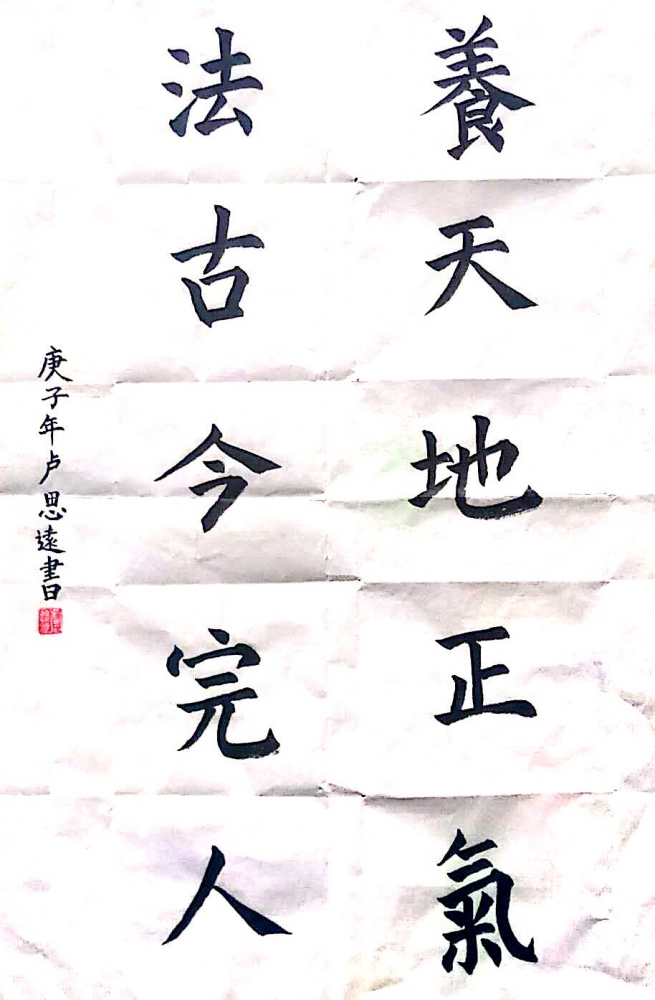 養天地正氣
法古今完人
庚子年卢思遠書